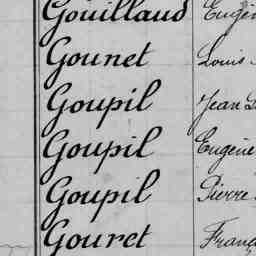 Gouillaud Eugèn
Gounet Louis
Goupil Jean
Goupil Eugène
Goupil Pierre
Gouret Franç